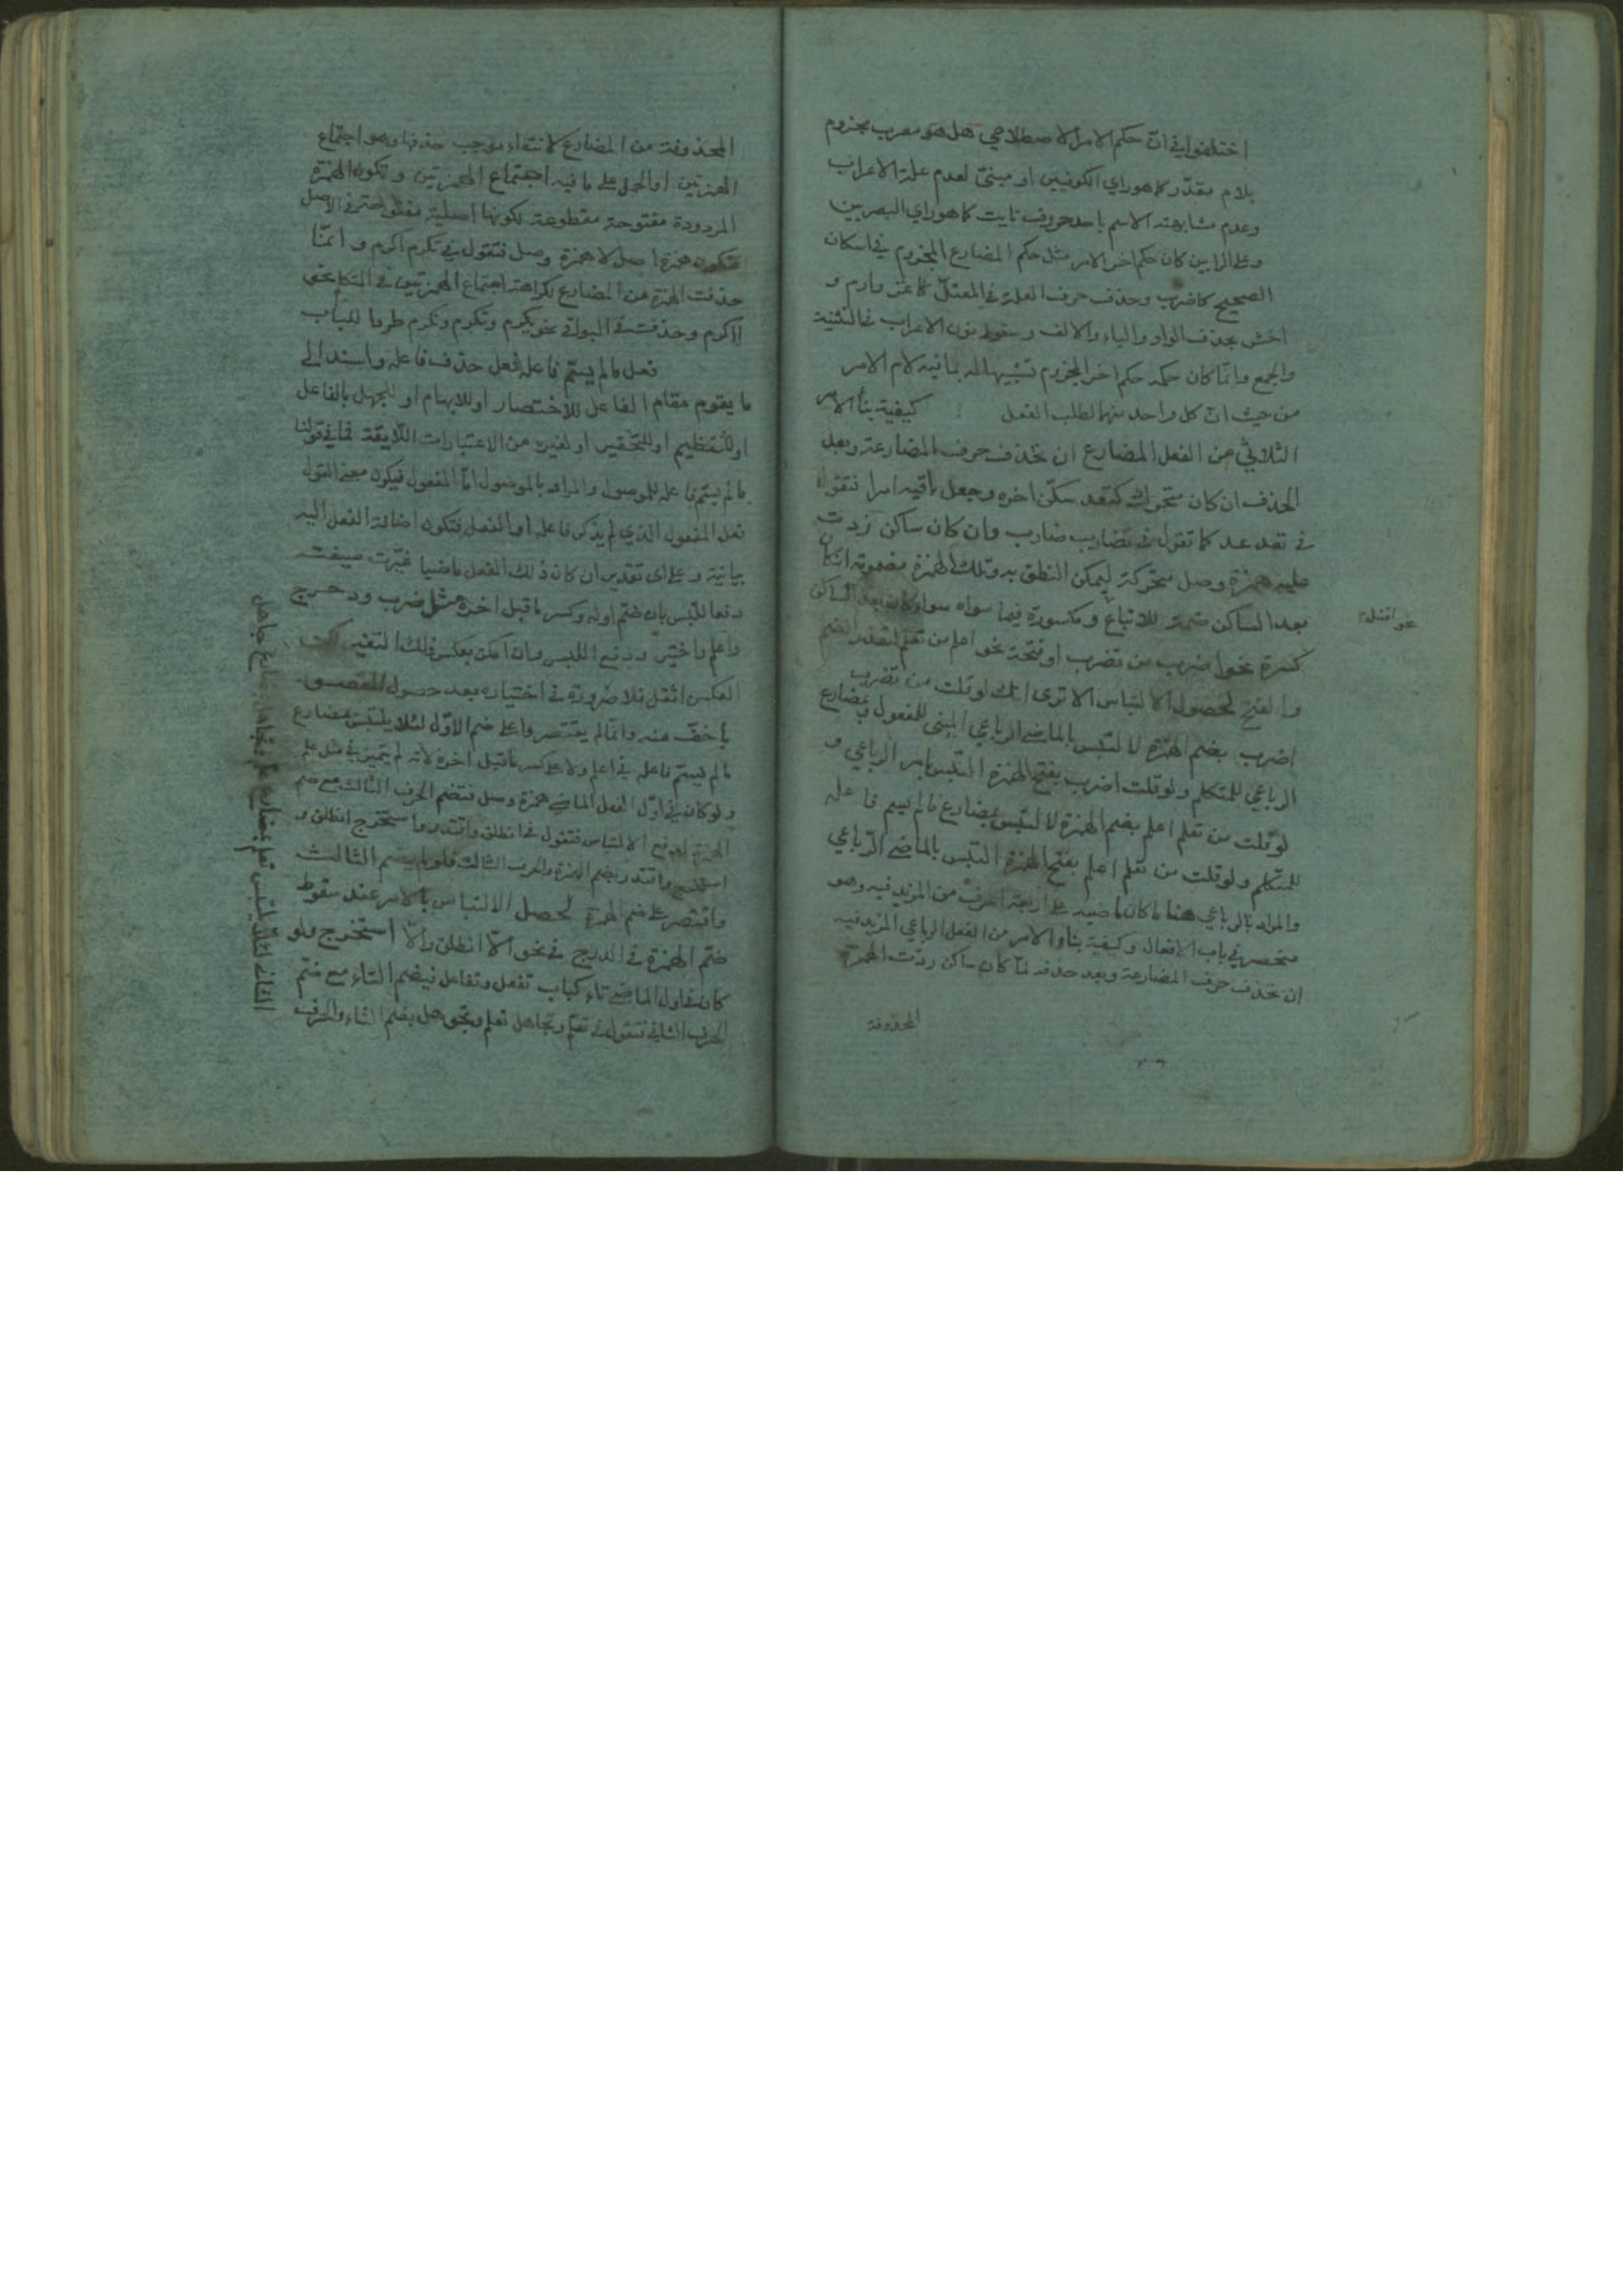 اختلفوا في ان حكم الامر الاصطلاحي هل هو معرب مجزوم
بلام مقدر كما هو راي الكوفيين او مبنيّ لعدم علة الاعراب
وعدم مشابهته الاسم باحد حروف نايت كما هو راي البصريين
وعلى الرايين كان حكم اخر الامر مثل حكم المضارع المجزوم في اسكان
الصحيح كاضرب وحذف حرف العلة في المعتلّ كاغز وارم و
اخش بحذف الواو والياء والالف وسقوط نون الاعراب في التثنية
والجمع وانما كان حكمه حكم اخر المجزوم تشبيها له بما فيه لام الامر
من حيث ان كل واحد منهما لطلب الفعل كيفية بناء الامر
الثلاثي من الفعل المضارع ان تحذف حرف المضارعة وبعد
الحذف ان كان متحرك كتعد سكّن اخره وجعل باقيه امرا فتقول
في تعد عد كما تقول في تضارب ضارب وان كان ساكن زدت
عليه همزة وصل متحركة ليمكن النطق به وتلك الهمزة مضمومة ان كان
بعد الساكن ضمة للاتباع ومكسورة فيما سواه سواء كان بعد الساكن
نحو اقتل
كسرة نحو اضرب من تضرب او فتحة نحو اعلم من تعلم لتعذر الضم
والفتح لحصول الالتباس الا ترى انك لو قلت من تضرب
اضرب بضم الهمزة لالتبس بالماضي الرباعي المبني للمفعول وبمضارع
الرباعي للمتكلم ولو قلت اضرب بفتح الهمزة التبس بامر الرباعي و
لو قلت من تعلم اعلم بضم الهمزة لالتبس بمضارع ما لم يسم فاعله
للمتكلم ولو قلت من تعلم اعلم بفتح الهمزة التبس بالماضي الرّباعي
والمراد بالرباعي هنا ما كان ماضيه على اربعة احرف من المزيد فيه وهو
منحصر في باب الافعال وكيفية بناء الامر من الفعل الرباعي المزيد فيه
ان تحذف حرف المضارعة وبعد حذفه لما كان ساكن ردّت الهمزة
المحذوفة
المحذوفة من المضارع لانتفاء موجب حذفها وهو اجتماع
الهمزتين او الحمل على ما فيه اجتماع الهمزتين وتكون الهمزة
المردودة مفتوحة مقطوعة لكونها اصلية مفتوحة في الاصل
فتكون همزة اصل لا همزة وصل فتقول في تكرم اكرم وانّما
حذفت الهمزة من المضارع لكراهة اجتماع الهمزتين في المتكلم نحو
أاكرم وحذفت في البواقي نحو يكرم وتكرم ونكرم طردا للباب
فعل ما لم يسمّ فاعله فعل حذف فاعله واسند الى
ما يقوم مقام الفاعل للاختصار او للابهام او للجهل بالفاعل
او للتعظيم او للتحقير او لغيره من الاعتبارات اللايقة فما في قولنا
ما لم يسمّ فاعله للموصول والمراد بالموصول امّا المفعول فيكون معنى القول
فعل المفعول الذي لم يذكر فاعله او الفعل فتكون اضافة الفعل اليه
بيانية وعلى اى تقدير ان كان ذلك الفعل ماضيا غيّرت صيغته
دفعا للّبس بان ضمّ اوله وكسر ما قبل اخره مثل ضرب ودحرج
واعلم واختير ودفع اللبس وان امكن بعكس ذلك التغير لكن
العكس اثقل فلا ضرورة في اختياره بعد حصول المقصود
باخفّ منه وانما لم يقتصروا على ضم الاوّل لئلا يلتبس بمضارع
ما لم يسمّ فاعله في اعلم ولا على كسر ما قبل اخره لانه لم يتميز في مثل علم
ولو كان في اوّل الفعل الماضي همزة وصل فتضم الحرف الثالث مع ضم
الهمزة لدفع الالتباس فتقول في انطلق واقتدر واستخرج انطلق و
استخرج واقتدر بضم الهمزة والحرف الثالث فلو لم يضم الثالث
واقتصر على ضم الهمزة لحصل الالتباس بالامر عند سقوط
ضمّ الهمزة في الدرج في نحو الا انطلق والّا استخرج ولو
كان في اول الماضي تاء كباب تفعل وتفاعل فيضم التاء مع ضمّ
الحرف الثاني فتقول في تعلّم وتجاهل تعلم وتجوهل بضم التاء والحرف
الثاني لئلا يلتبس تعلم بمضارع علم وتجاهل بمضارع جاهل